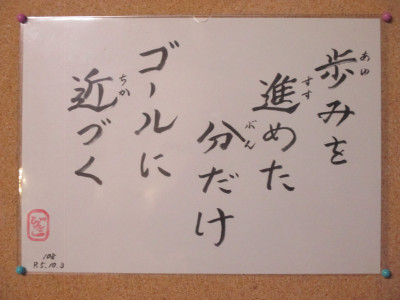 歩みを
進めた
分だけ
ゴールに
近づく
あゆ
すす
ぶん
ちか
R.5.10.3